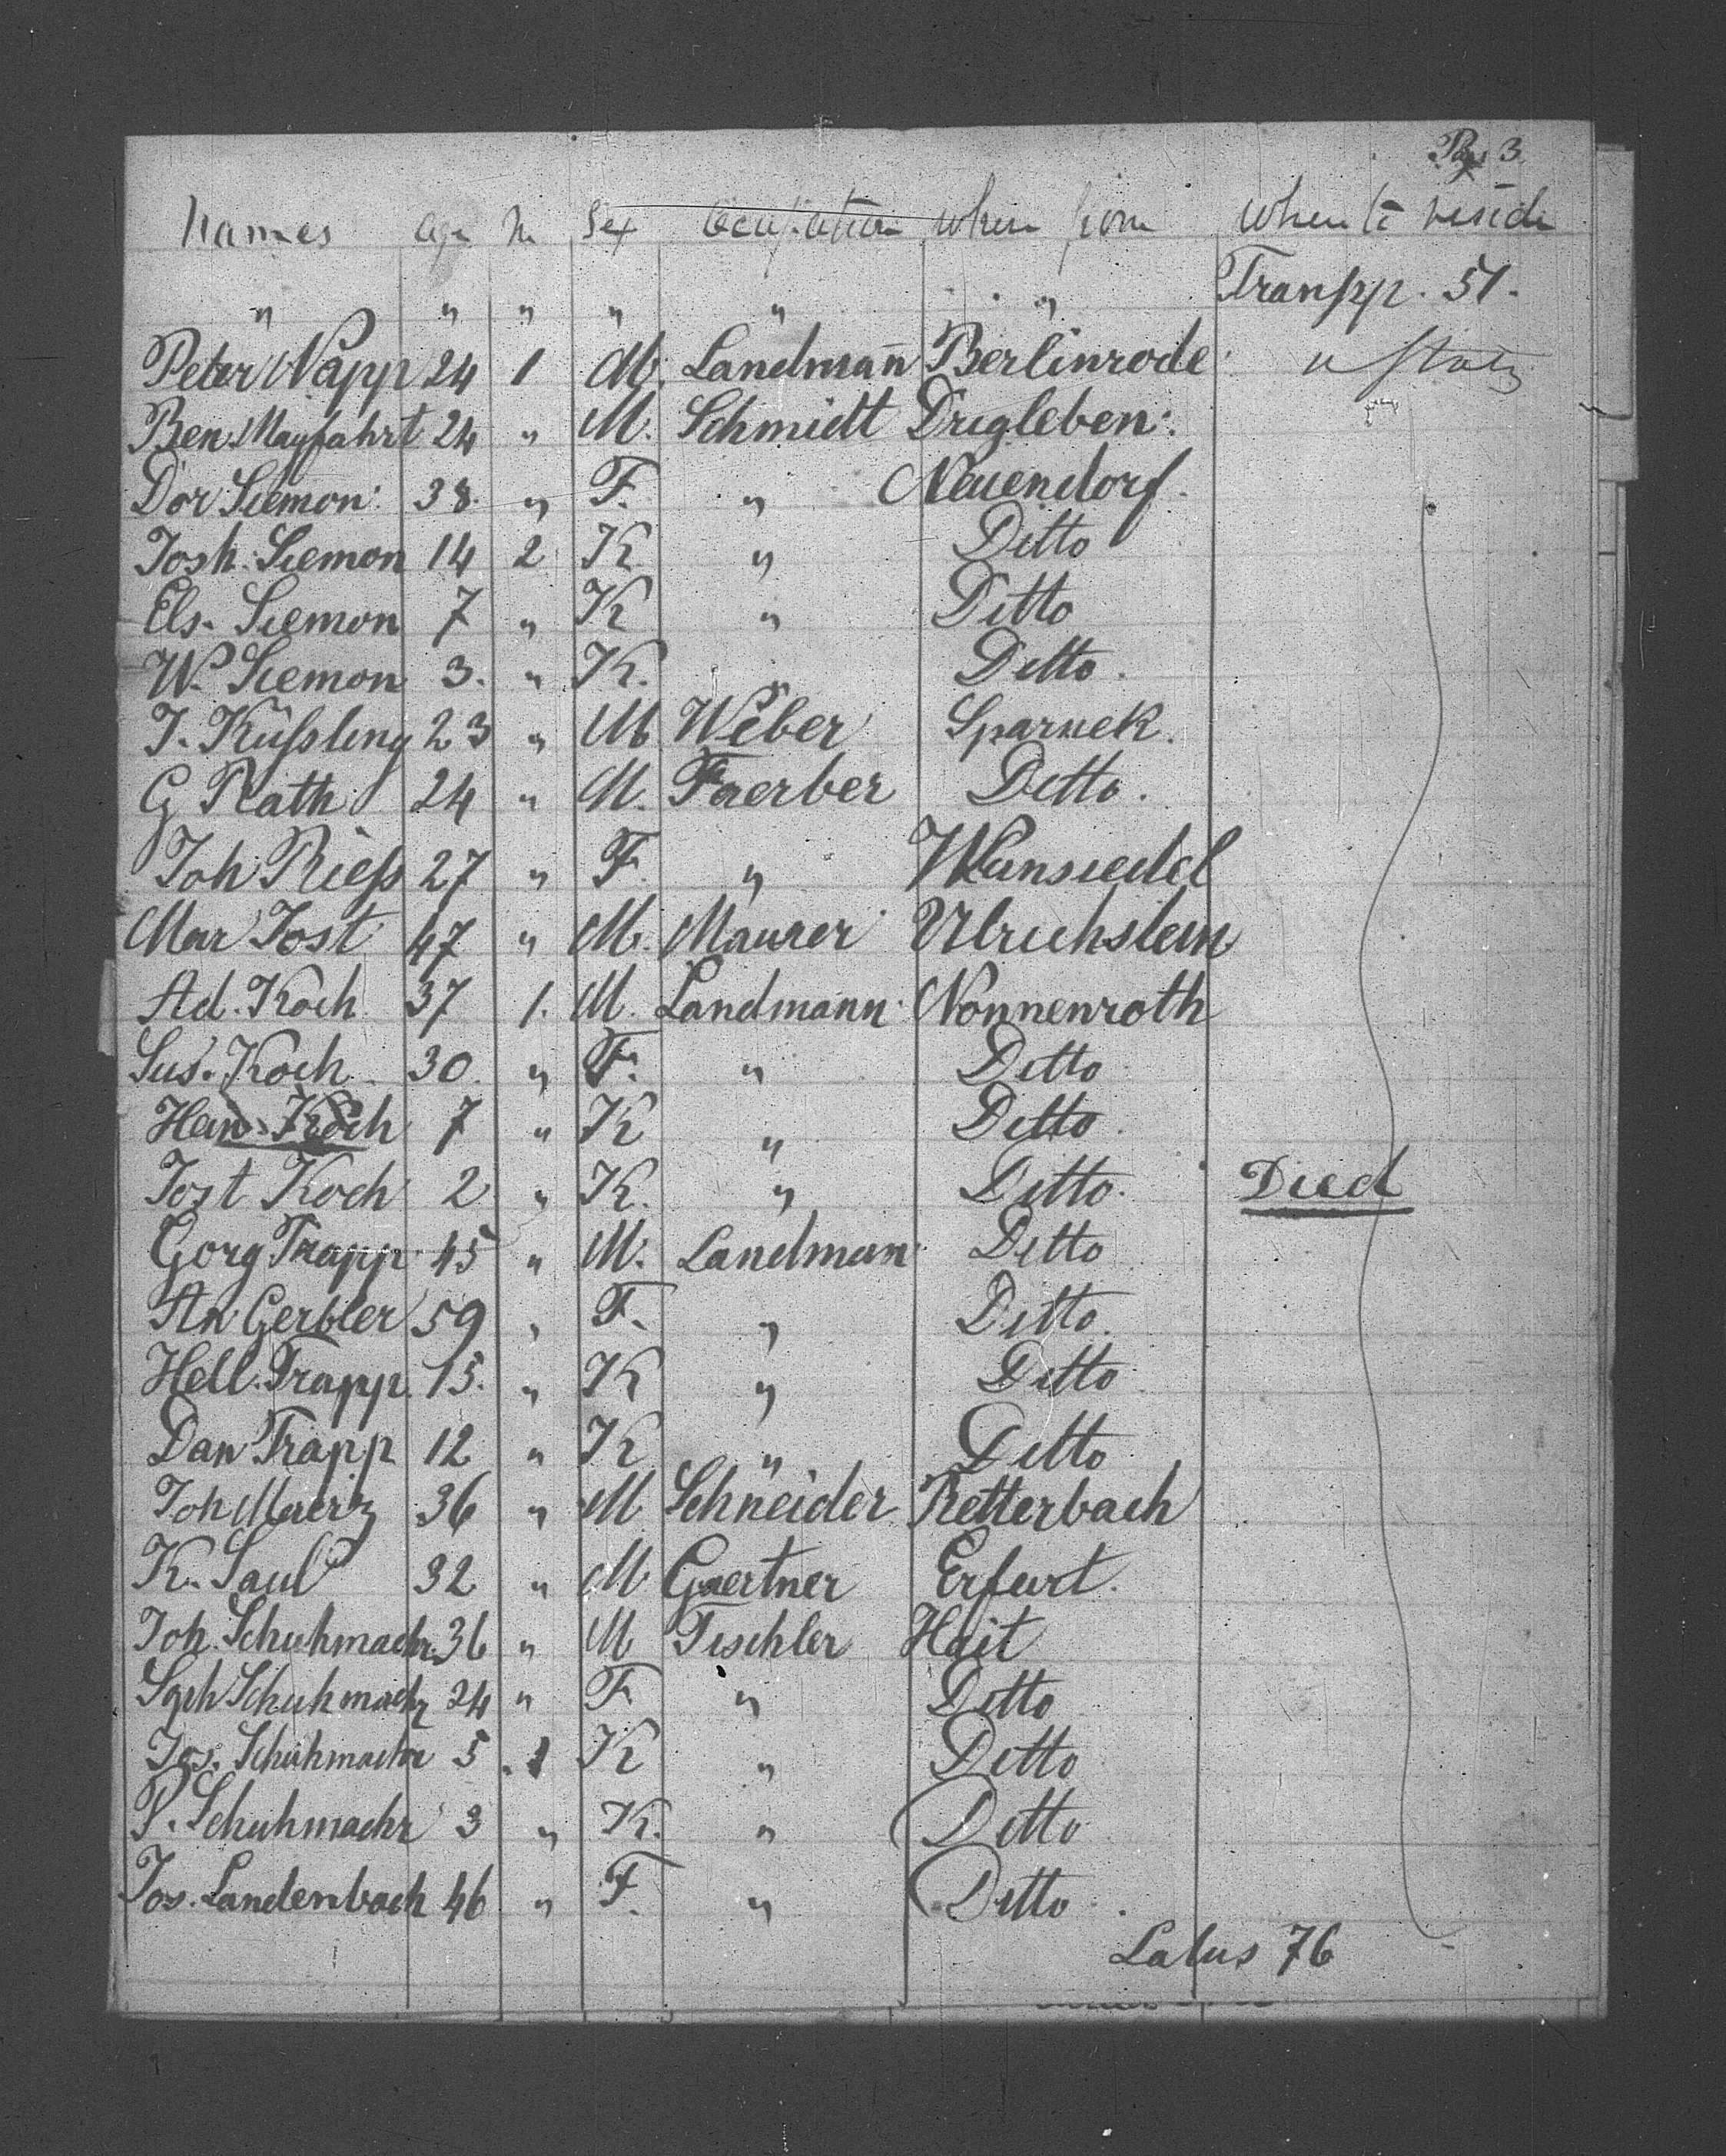 Pag 3
Names age N Sex Occupation where from where to reside
" " " " " " Transpp. 51.
Peter Wapp 24 1 M. Landmañ Berlinrode u States
Ben. Mayfahrt 24 " M. Schmidt Drigleben:
Dor Siemon: 38. " F. " Neuendorf.
Josh. Siemon 14 2 K " Ditto
Els. Siemon 7 " K " Ditto
W. Siemon 3. " K. " Ditto.
J. Küssling 23 " M Weber Sparnek.
G Rath 24 " M. Faerber Ditto.
Joh Riess 27 " F. " Wunsiedel
Mar Jost 47 " M. Maurer Ulrichstein
Ad. Koch 37 1. M. Landmann. Nonnenroth
Sus. Koch. 30. " F. " Ditto
Hein. Koch 7 " K " Ditto.
Jost Koch 2 " K. " Ditto. Died
Gorg Trapp 45 " M. Landman Ditto
An Gerbler 59 " F. " Ditto.
Hell. Trapp. 15. " K " Ditto
Dan Trapp 12 " K " Ditto
Joh Maerz 36 " M Schneider Retterbach
K. Saul 32 " M Gaertner Erfurt.
Joh. Schuhmachr. 36 " M Tischler Hait
Soph Schuhmachr 24 " F " Ditto
Jos. Schuhmachr 5 1 K " Ditto
P. Schuhmachr 3 " K. " Ditto
Jos. Landenbach 46 " F. " Ditto.
Latus 76